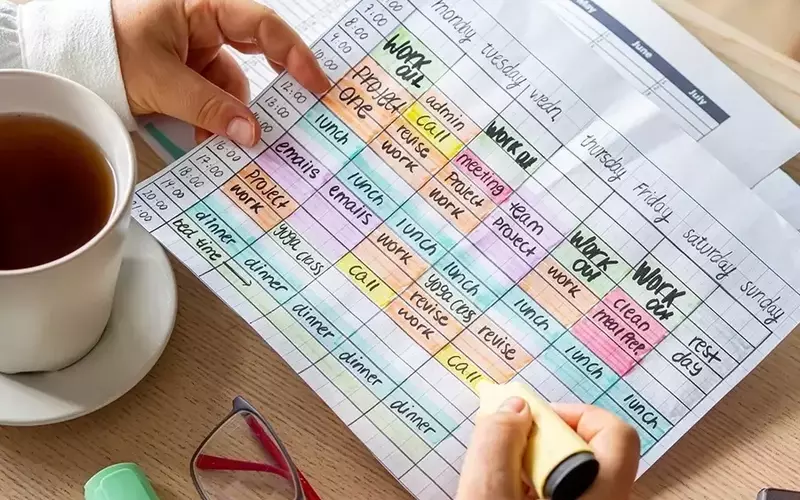 June
July
monday tuesday wedn. thursday friday saturday sunday
7:00
8:00
9:00
10:00
12:00
13:00
16:00
17:00
18:00
19:00
20:00
21:00
WORK
OUT
PROJECT
ONE
lunch
emails
project
work
dinner
bed time →
admin
Call
revise
work
lunch
emails
yoga class
dinner
WORK OU
meeting
project
work
lunch
work
call
dinner
team
project
lunch
yoga class
revise
work
dinner
WORK
OUT
work
lunch
revise
call
dinner
WORK
OUT
clean
meal prep.
lunch
rest
day
lunch